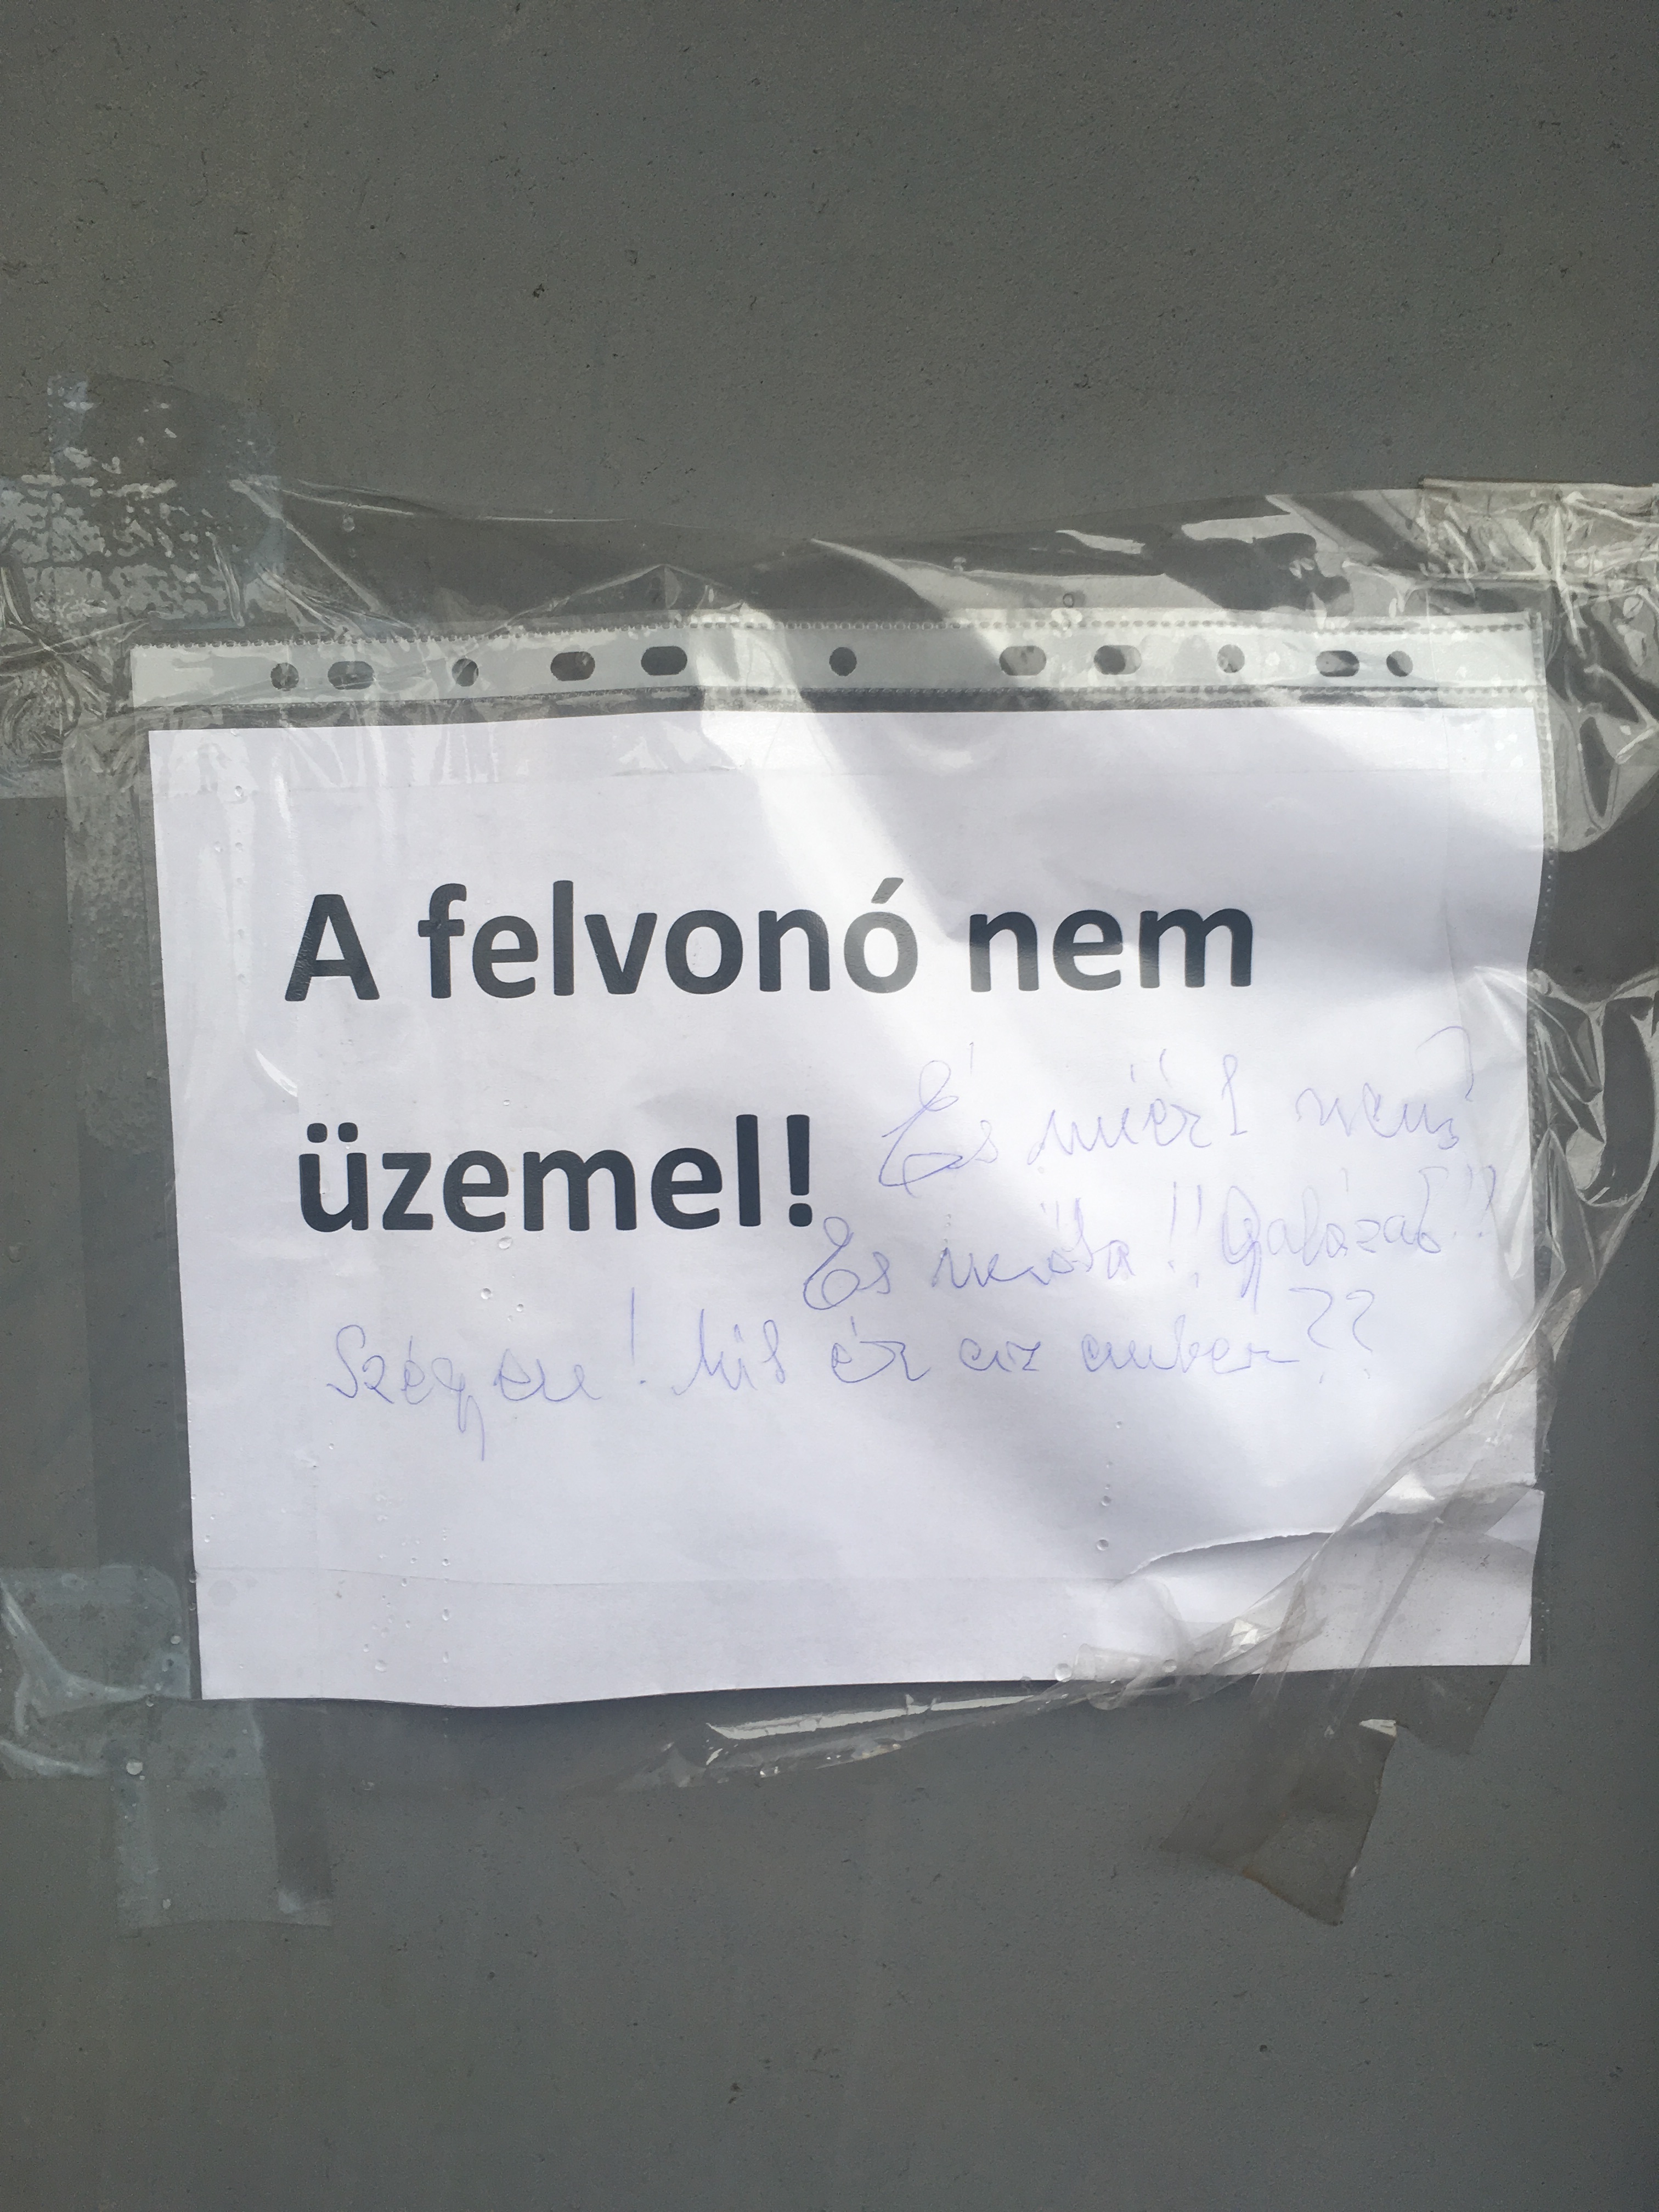 A felvonó nem
üzemel!
És miért nem?
És mióta!! Gyalázat!!
Szégyen! Mit ér az ember??